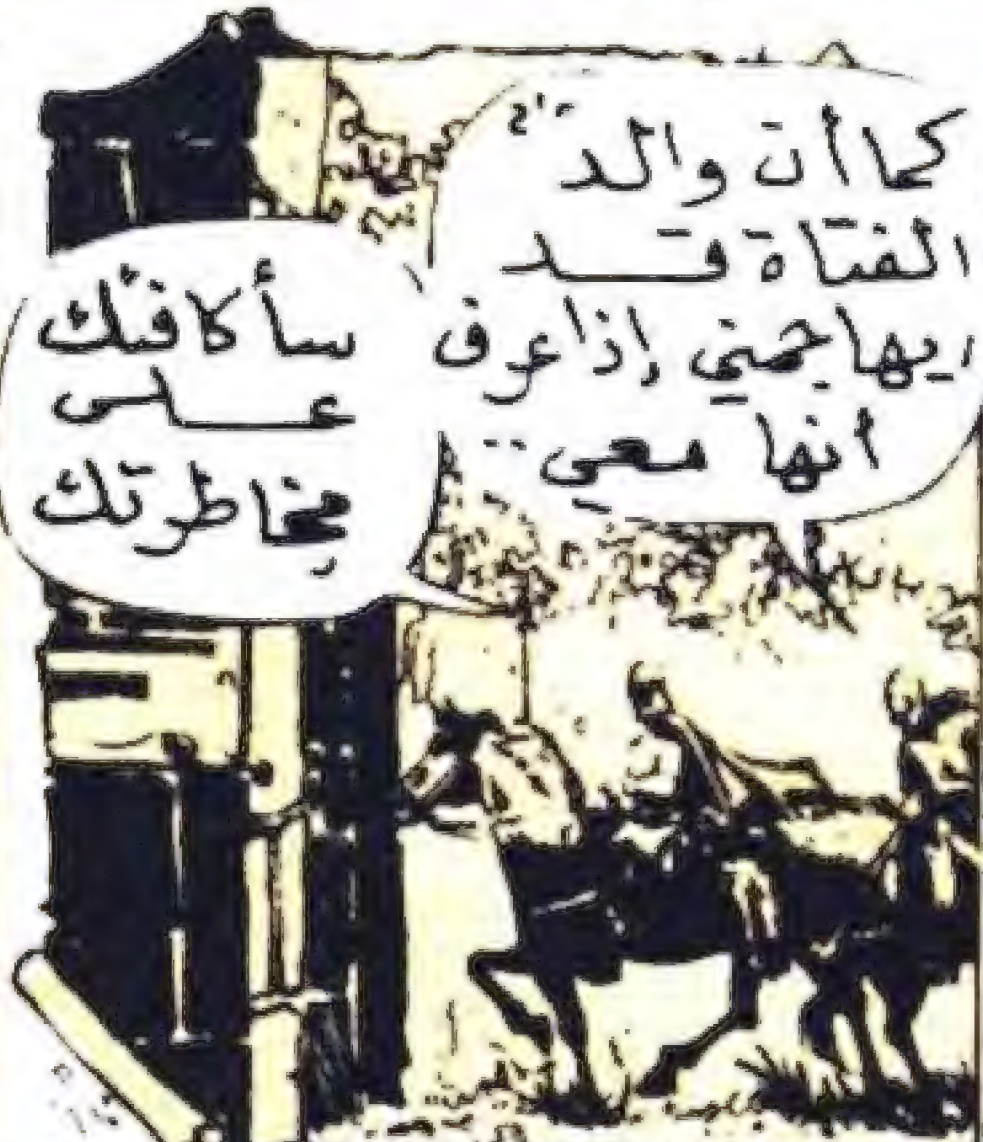 كما أن والد
الفتاة قد
يهاجمني إذا عرف
أنها معي..
سأكافئك
على
مخاطرتك